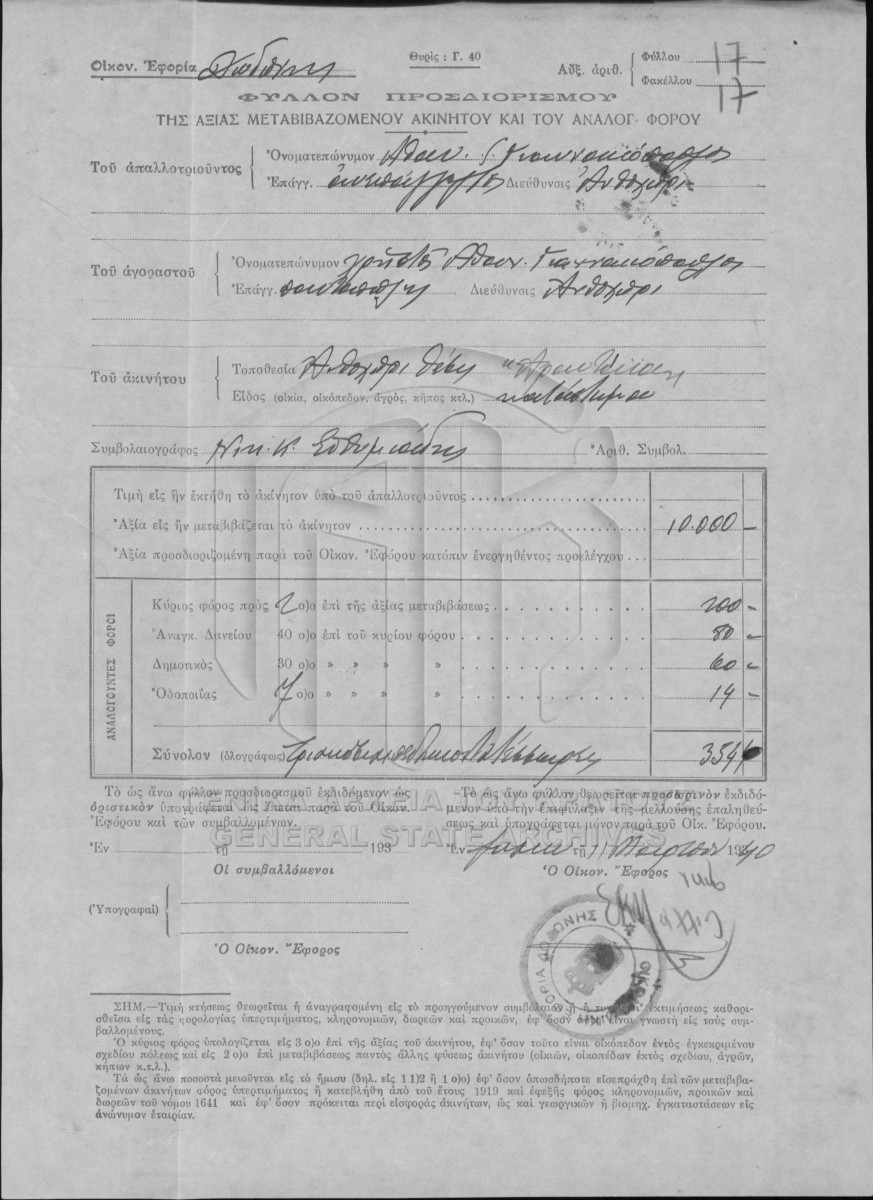 Οἰκον. Ἐφορία Δωδώνης
Θυρὶς : Γ. 40
Αὔξ. ἀριθ.
Φύλλου 17
Φακέλλου 17
ΦΥΛΛΟΝ ΠΡΟΣΔΙΟΡΙΣΜΟΥ
ΤΗΣ ΑΞΙΑΣ ΜΕΤΑΒΙΒΑΖΟΜΕΝΟΥ ΑΚΙΝΗΤΟΥ ΚΑΙ ΤΟΥ ΑΝΑΛΟΓ. ΦΟΡΟΥ
Τοῦ ἀπαλλοτριοῦντος
Ὀνοματεπώνυμον Ἀθαν. Γιαννακόπουλος
Ἐπάγγ. Διεύθυνσις Ἀνθοχῶρι
Τοῦ ἀγοραστοῦ
Ὀνοματεπώνυμον Χρῆστος Ἀθαν. Γιαννακόπουλος
Ἐπάγγ. παντοπώλης Διεύθυνσις Ἀνθοχῶρι
Τοῦ ἀκινήτου
Τοποθεσία Ἀνθοχῶρι θέσις
Εἶδος (οἰκία, οἰκόπεδον, ἀγρός, κῆπος κτλ.) κατάστημα
Συμβολαιογράφος Νικ. Κ. Εὐθυμιάδης Ἀριθ. Συμβολ.
Τιμὴ εἰς ἣν ἐκτήθη τὸ ἀκίνητον ὑπὸ τοῦ ἀπαλλοτριοῦντος
Ἀξία εἰς ἣν μεταβιβάζεται τὸ ἀκίνητον 10.000 –
Ἀξία προσδιοριζομένη παρὰ τοῦ Οἰκον. Ἐφόρου κατόπιν ἐνεργηθέντος προελέγχου
ΑΝΑΛΟΓΟΥΝΤΕΣ ΦΟΡΟΙ
Κύριος φόρος πρὸς 2 ο)ο ἐπὶ τῆς ἀξίας μεταβιβάσεως 200 –
Ἀναγκ. Δανείου 40 ο)ο ἐπὶ τοῦ κυρίου φόρου 80 –
Δημοτικὸς 30 ο)ο » » » 60 –
Ὁδοποιΐας 7 ο)ο » » » 14 –
Σύνολον (ὁλογράφως) Τριακόσιαι πεντήκοντα τέσσαρες 354
Τὸ ὡς ἄνω φύλλον προσδιορισμοῦ ἐκδιδόμενον ὡς
ὁριστικὸν ὑπογράφεται ὡς ἕπεται παρὰ τοῦ Οἰκον.
Ἐφόρου καὶ τῶν συμβαλλομένων.
Ἐν τῇ 193
Οἱ συμβαλλόμενοι
(Ὑπογραφαὶ)
Ὁ Οἰκον. Ἔφορος
Τὸ ὡς ἄνω φύλλον θεωρεῖται προσωρινὸν ἐκδιδό-
μενον ὑπὸ τὴν ἐπιφύλαξιν τῆς μελλούσης ἐπαληθεύ-
σεως καὶ ὑπογράφεται μόνον παρὰ τοῦ Οἰκ. Ἐφόρου.
Ἐν τῇ 11 Μαρτίου 1940
Ὁ Οἰκον. Ἔφορος
ΓΕΝΙΚΑ ΑΡΧΕΙΑ ΤΟΥ ΚΡΑΤΟΥΣ
GENERAL STATE ARCHIVES
ΟΙΚΟΝ. ΕΦΟΡΙΑ ΔΩΔΩΝΗΣ
ΣΗΜ.—Τιμὴ κτήσεως θεωρεῖται ἡ ἀναγραφομένη εἰς τὸ προηγούμενον συμβόλαιον ἢ ἡ ἐκτιμήσεως καθορι-
σθεῖσα εἰς τὰς φορολογίας ὑπερτιμήματος, κληρονομιῶν, δωρεῶν καὶ προικῶν, ἐφ' ὅσον αὕτη εἶναι γνωστὴ εἰς τοὺς συμ-
βαλλομένους.
Ὁ κύριος φόρος ὑπολογίζεται εἰς 3 ο)ο ἐπὶ τῆς ἀξίας τοῦ ἀκινήτου, ἐφ' ὅσον τοῦτο εἶναι οἰκόπεδον ἐντὸς ἐγκεκριμένου
σχεδίου πόλεως καὶ εἰς 2 ο)ο ἐπὶ μεταβιβάσεως παντὸς ἄλλης φύσεως ἀκινήτου (οἰκιῶν, οἰκοπέδων ἐκτὸς σχεδίου, ἀγρῶν,
κήπων κ.τ.λ.).
Τὰ ὡς ἄνω ποσοστὰ μειοῦνται εἰς τὸ ἥμισυ (δηλ. εἰς 1 1)2 ἢ 1 ο)ο) ἐφ' ὅσον ὁπωσδήποτε εἰσεπράχθη ἐπὶ τῶν μεταβιβα-
ζομένων ἀκινήτων φόρος ὑπερτιμήματος ἢ κατεβλήθη ἀπὸ τοῦ ἔτους 1919 καὶ ἐφεξῆς φόρος κληρονομιῶν, προικῶν καὶ
δωρεῶν τοῦ νόμου 1641 καὶ ἐφ' ὅσον πρόκειται περὶ εἰσφορᾶς ἀκινήτων, ὡς καὶ γεωργικῶν ἢ βιομηχ. ἐγκαταστάσεων εἰς
ἀνώνυμον ἑταιρίαν.